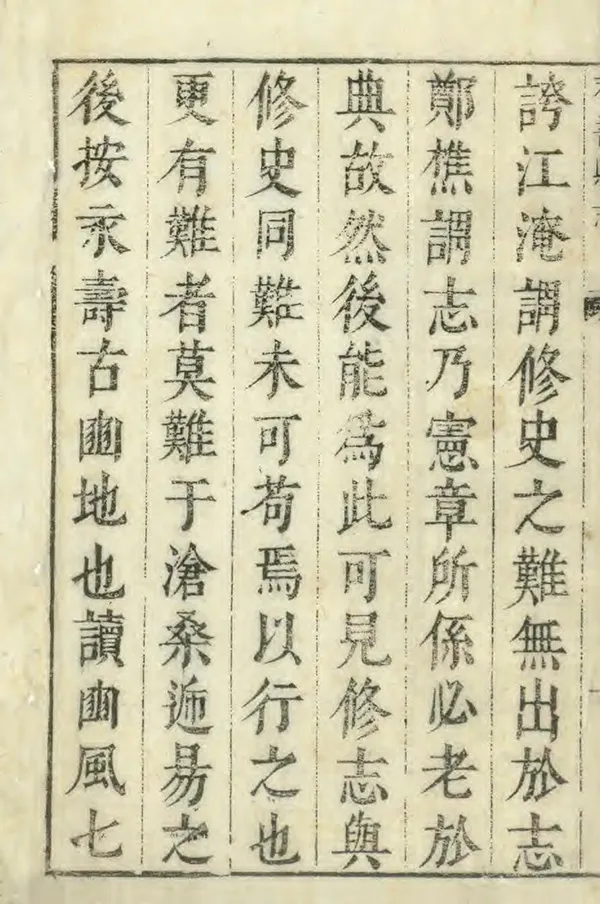 誇江淹謂修史之難無出於志
鄭樵謂志乃憲章所係必老於
典故然後能爲此可見修志與
修史同難未可苟焉以行之也
更有難者莫難于滄桑迊易之
後按永壽古豳地也讀豳風七